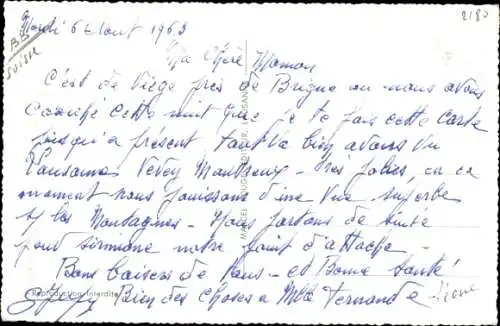 Mardi 6 Aout 1963
2180
BB
SUISSE
Ma chère Maman
C'est de Viège près de Brigue ou nous avons
couché cette nuit que je te fais cette carte
jusqu'a présent tout va bien avons vu
Lausanne Vevey Montreux - très jolies, en ce
moment nous jouissons d'une vue superbe
s/ les Montagnes - Nous partons de suite
pour Sirmione notre point d'attache -
Bons baisers de tous - et Bonne Santé
Reproduction interdite
Bien des choses a Mlle Fernande